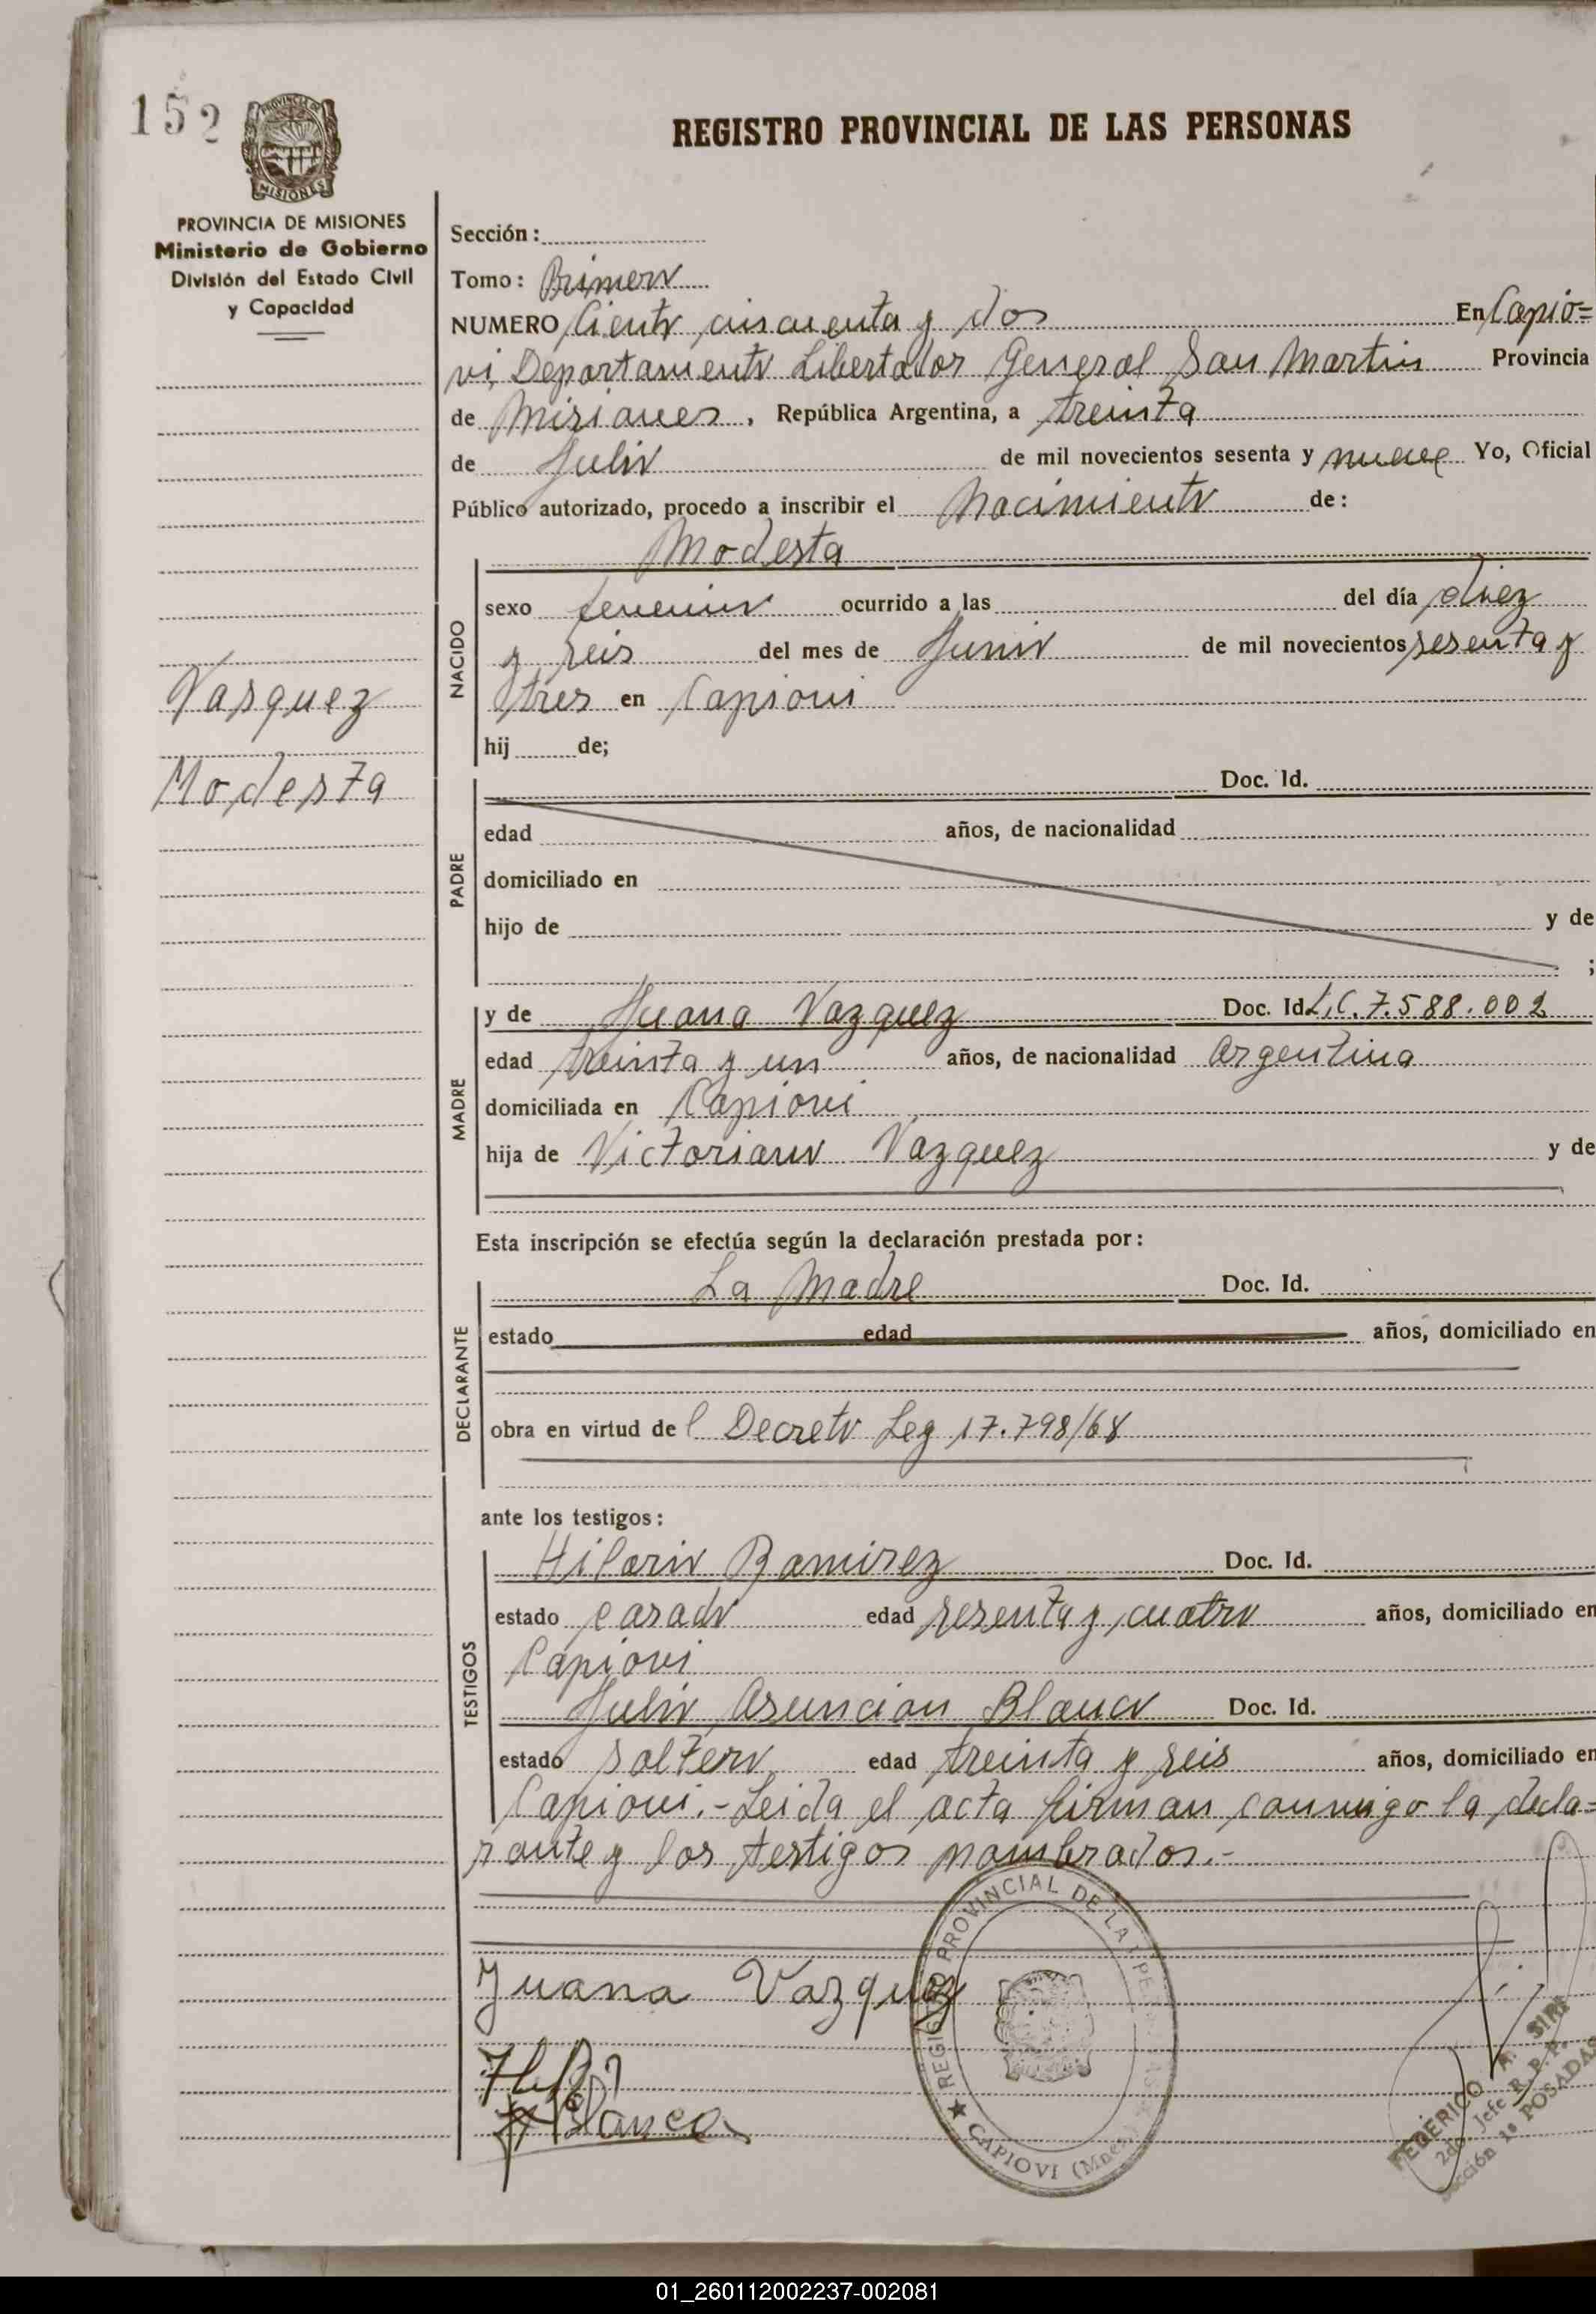 152
PROVINCIA DE
MISIONES
REGISTRO PROVINCIAL DE LAS PERSONAS
PROVINCIA DE MISIONES
Ministerio de Gobierno
División del Estado Civil
y Capacidad
Sección:
Tomo: Primero
NUMERO Ciento cincuenta y dos En Capio=
vi, Departamento Libertador General San Martin Provincia
de Misiones, República Argentina, a treinta
de Julio de mil novecientos sesenta y nueve Yo, Oficial
Público autorizado, procedo a inscribir el Nacimiento de:
Modesta
NACIDO
sexo femenino ocurrido a las del día diez
y seis del mes de Junio de mil novecientos sesenta y
tres en Capiovi
hij de;
Vasquez
Modesta
PADRE
Doc. Id.
edad años, de nacionalidad
domiciliado en
hijo de y de
;
MADRE
y de Juana Vazquez Doc. Id. L.C. 7.588.002
edad treinta y un años, de nacionalidad Argentina
domiciliada en Capiovi
hija de Victoriano Vazquez y de
Esta inscripción se efectúa según la declaración prestada por:
DECLARANTE
La Madre Doc. Id.
estado edad años, domiciliado en
obra en virtud del Decreto Ley 17.798/68
ante los testigos:
TESTIGOS
Hilario Ramirez Doc. Id.
estado casado edad sesenta y cuatro años, domiciliado en
Capiovi
Julio Asuncion Blanco Doc. Id.
estado soltero edad treinta y seis años, domiciliado en
Capiovi.- Leida el acta firman conmigo la decla=
rante y los testigos nombrados.-
Juana Vazquez
Blanco
REGISTRO PROVINCIAL DE LA PERSONAS
★ CAPIOVI (Mnes.)
FEDERICO A. SIRI
2do. Jefe R.P.P.
Sección 1ª POSADAS
01_260112002237-002081